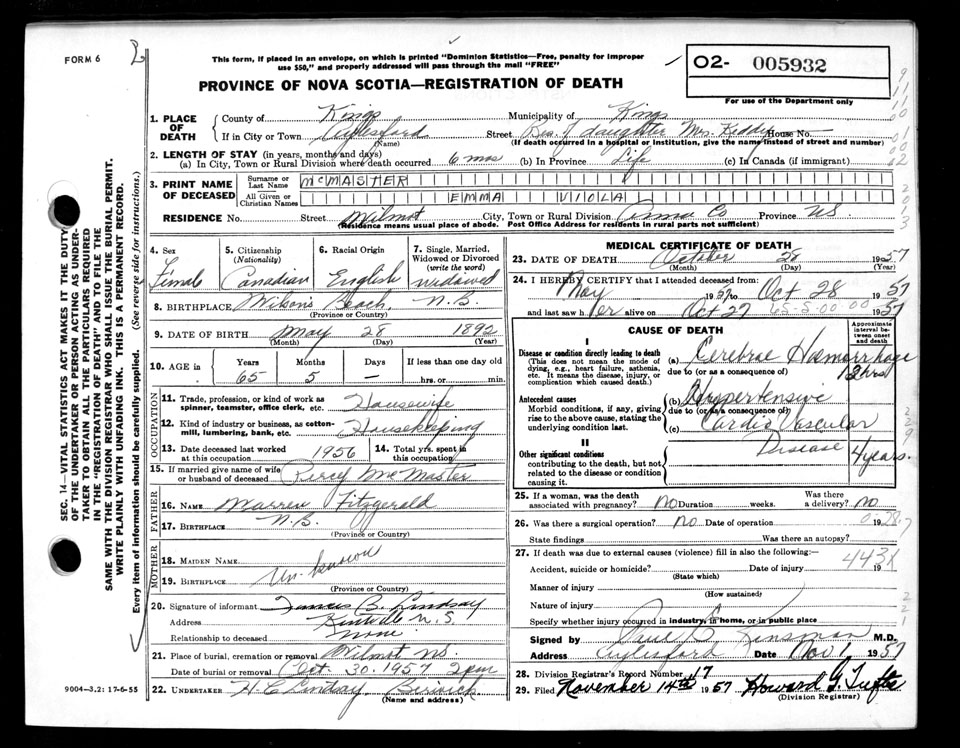 FORM 6
2
This form, if placed in an envelope, on which is printed "Dominion Statistics—Free, penalty for improper
use $50," and properly addressed will pass through the mail "FREE"
PROVINCE OF NOVA SCOTIA—REGISTRATION OF DEATH
02- 005932
For use of the Department only
1. PLACE OF DEATH
County of Kings Municipality of Kings
If in City or Town Aylesford Street Res. of daughter Mrs. Kiddy House No. —
(Name) (If death occurred in a hospital or institution, give the name instead of street and number)
2. LENGTH OF STAY (in years, months and days)
(a) In City, Town or Rural Division where death occurred 6 mos (b) In Province Life (c) In Canada (if immigrant)
3. PRINT NAME OF DECEASED
Surname or Last Name McMASTER
All Given or Christian Names EMMA VIOLA
RESIDENCE No. Street Wilmot City, Town or Rural Division Anna Co Province NS.
(Residence means usual place of abode. Post Office Address for residents in rural parts not sufficient)
4. Sex Female
5. Citizenship (Nationality) Canadian
6. Racial Origin English
7. Single, Married, Widowed or Divorced (write the word) widowed
8. BIRTHPLACE Wilson's Beach N.B.
(Province or Country)
9. DATE OF BIRTH May 28 1892
(Month) (Day) (Year)
10. AGE in Years 65 Months 5 Days — If less than one day old hrs. or min.
OCCUPATION
11. Trade, profession, or kind of work as spinner, teamster, office clerk, etc. Housewife
12. Kind of industry or business, as cotton-mill, lumbering, bank, etc. Housekeeping
13. Date deceased last worked at this occupation 1956 14. Total yrs. spent in this occupation
15. If married give name of wife or husband of deceased Percy McMaster
FATHER
16. NAME Warren Fitzgerald
17. BIRTHPLACE N.B.
(Province or Country)
MOTHER
18. MAIDEN NAME
19. BIRTHPLACE Un-known
(Province or Country)
20. Signature of informant Francis B. Lindsay
Address Kentville N.S.
Relationship to deceased none
21. Place of burial, cremation or removal Wilmot NS.
Date of burial or removal Oct. 30. 1957 2pm
22. UNDERTAKER H.C. Lindsay. Berwick
(Name and address)
MEDICAL CERTIFICATE OF DEATH
23. DATE OF DEATH October 28 1957
(Month) (Day) (Year)
24. I HEREBY CERTIFY that I attended deceased from
May 1957 to Oct 28 1957
and last saw her alive on Oct 27 1957
65-5-00 00
CAUSE OF DEATH
Approximate interval between onset and death
I
Disease or condition directly leading to death (a) Cerebral Hæmorrhage
(This does not mean the mode of dying, e.g., heart failure, asthenia, etc. It means the disease, injury, or complication which caused death.)
due to (or as a consequence of) 12 hrs
Antecedent causes (b) Hypertensive
Morbid conditions, if any, giving rise to the above cause, stating the underlying condition last.
due to (or as a consequence of)
(c) Cardio Vascular
II
Disease 4 years.
Other significant conditions
contributing to the death, but not related to the disease or condition causing it.
25. If a woman, was the death associated with pregnancy? No Duration weeks. Was there a delivery? no
26. Was there a surgical operation? no Date of operation 19
State findings Was there an autopsy?
27. If death was due to external causes (violence) fill in also the following:—
443X
Accident, suicide or homicide? Date of injury 19
(State which)
Manner of injury
(How sustained)
Nature of injury
Specify whether injury occurred in industry, in home, or in public place
Signed by Kinsman M.D.
Address Aylesford Date Nov 1 1957
28. Division Registrar's Record Number 17
29. Filed November 14th 1957 Howard G. Tufts
(Division Registrar)
9004-3.2: 17-6-55
SEC. 14—VITAL STATISTICS ACT MAKES IT THE DUTY
OF THE UNDERTAKER OR PERSON ACTING AS UNDER-
TAKER TO OBTAIN ALL THE PARTICULARS REQUIRED
IN THE "REGISTRATION OF DEATH" AND TO FILE THE
SAME WITH THE DIVISION REGISTRAR WHO SHALL ISSUE THE BURIAL PERMIT.
WRITE PLAINLY WITH UNFADING INK. THIS IS A PERMANENT RECORD.
Every item of information should be carefully supplied. (See reverse side for instructions.)